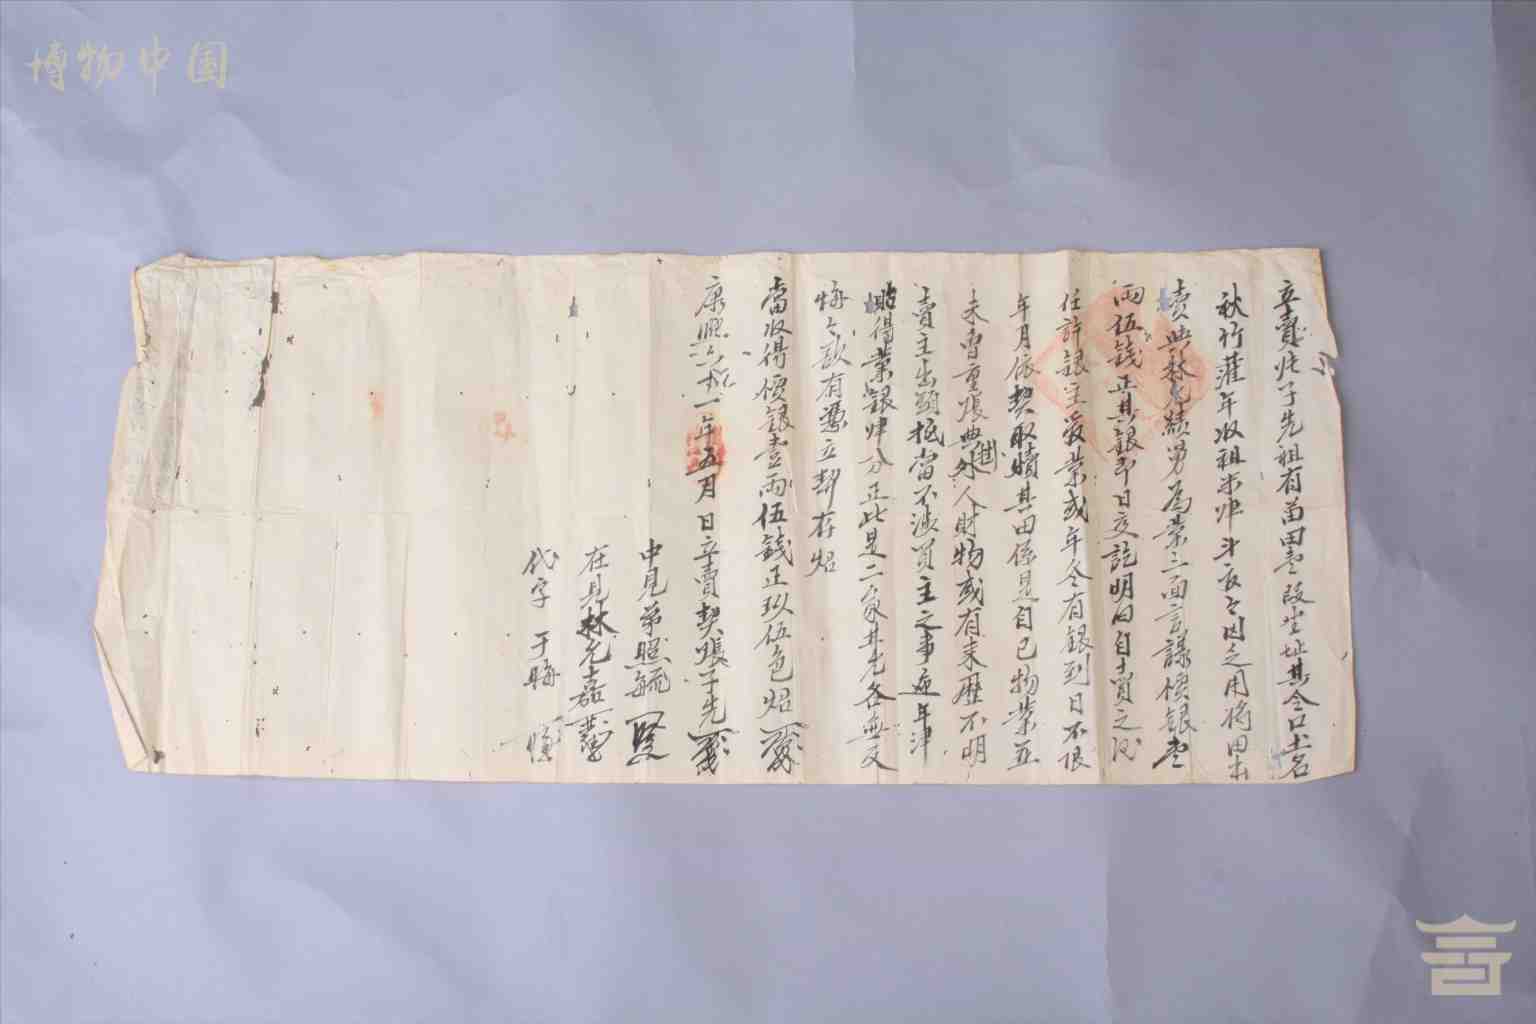 博物中国
立賣 子先祖有苗田壹段坐址其合口土名
秋竹 年收租米 斗 今因乏用將田出
賣與林允績 為業三面言議價銀壹
兩伍錢正其銀即日交訖明白自賣之後
任許銀主管業或年冬有銀到日不限
年月依契取贖其田係是自己物業並
未曾重張典掛外人財物或有來歷不明
賣主出頭抵當不涉買主之事遞年津
貼得業銀 分正此是二家甘允各無反
悔今欲有憑立契存炤
當收得價銀壹兩伍錢正玖伍色炤
康熙六十一年五月 日立賣契張子先
中見弟照毓
在見林允 
代字 于晦